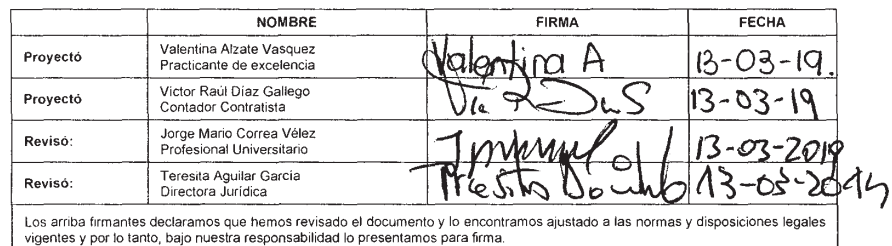 NOMBRE FIRMA FECHA
Proyectó Valentina Alzate Vasquez Practicante de excelencia Valentina A 13-03-19.
Proyectó Victor Raúl Díaz Gallego Contador Contratista 13-03-19
Revisó: Jorge Mario Correa Vélez Profesional Universitario 13-03-2019
Revisó: Teresita Aguilar García Directora Jurídica 13-03-2019
Los arriba firmantes declaramos que hemos revisado el documento y lo encontramos ajustado a las normas y disposiciones legales
vigentes y por lo tanto, bajo nuestra responsabilidad lo presentamos para firma.